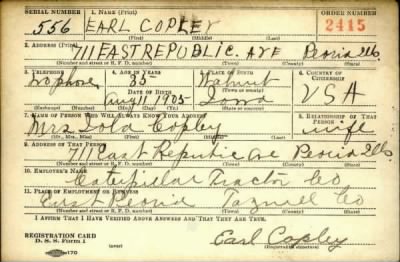 SERIAL NUMBER 1. NAME (Print) ORDER NUMBER
556 EARL COPLEY 2415
(First) (Middle) (Last)
2. ADDRESS (Print)
711 EAST REPUBLIC AVE Peoria Ills
(Number and street or R. F. D. number) (Town) (County) (State)
3. TELEPHONE 4. AGE IN YEARS 5. PLACE OF BIRTH 6. COUNTRY OF CITIZENSHIP
no phone 35 Walnut
DATE OF BIRTH (Town or county) USA
Aug 11 1905 Iowa
(Exchange) (Number) (Mo.) (Day) (Yr.) (State or country)
7. NAME OF PERSON WHO WILL ALWAYS KNOW YOUR ADDRESS 8. RELATIONSHIP OF THAT PERSON
Mrs Lola Copley wife
(Mr., Mrs., Miss) (First) (Middle) (Last)
9. ADDRESS OF THAT PERSON
711 East Republic Ave Peoria Ills
(Number and street or R. F. D. number) (Town) (County) (State)
10. EMPLOYER'S NAME
Caterpillar Tractor Co
11. PLACE OF EMPLOYMENT OR BUSINESS
East Peoria Tazwell Co
(Number and street or R. F. D. number) (Town) (County) (State)
I AFFIRM THAT I HAVE VERIFIED ABOVE ANSWERS AND THAT THEY ARE TRUE.
REGISTRATION CARD
D. S. S. Form 1 (over) Earl Copley
(Registrant's signature)